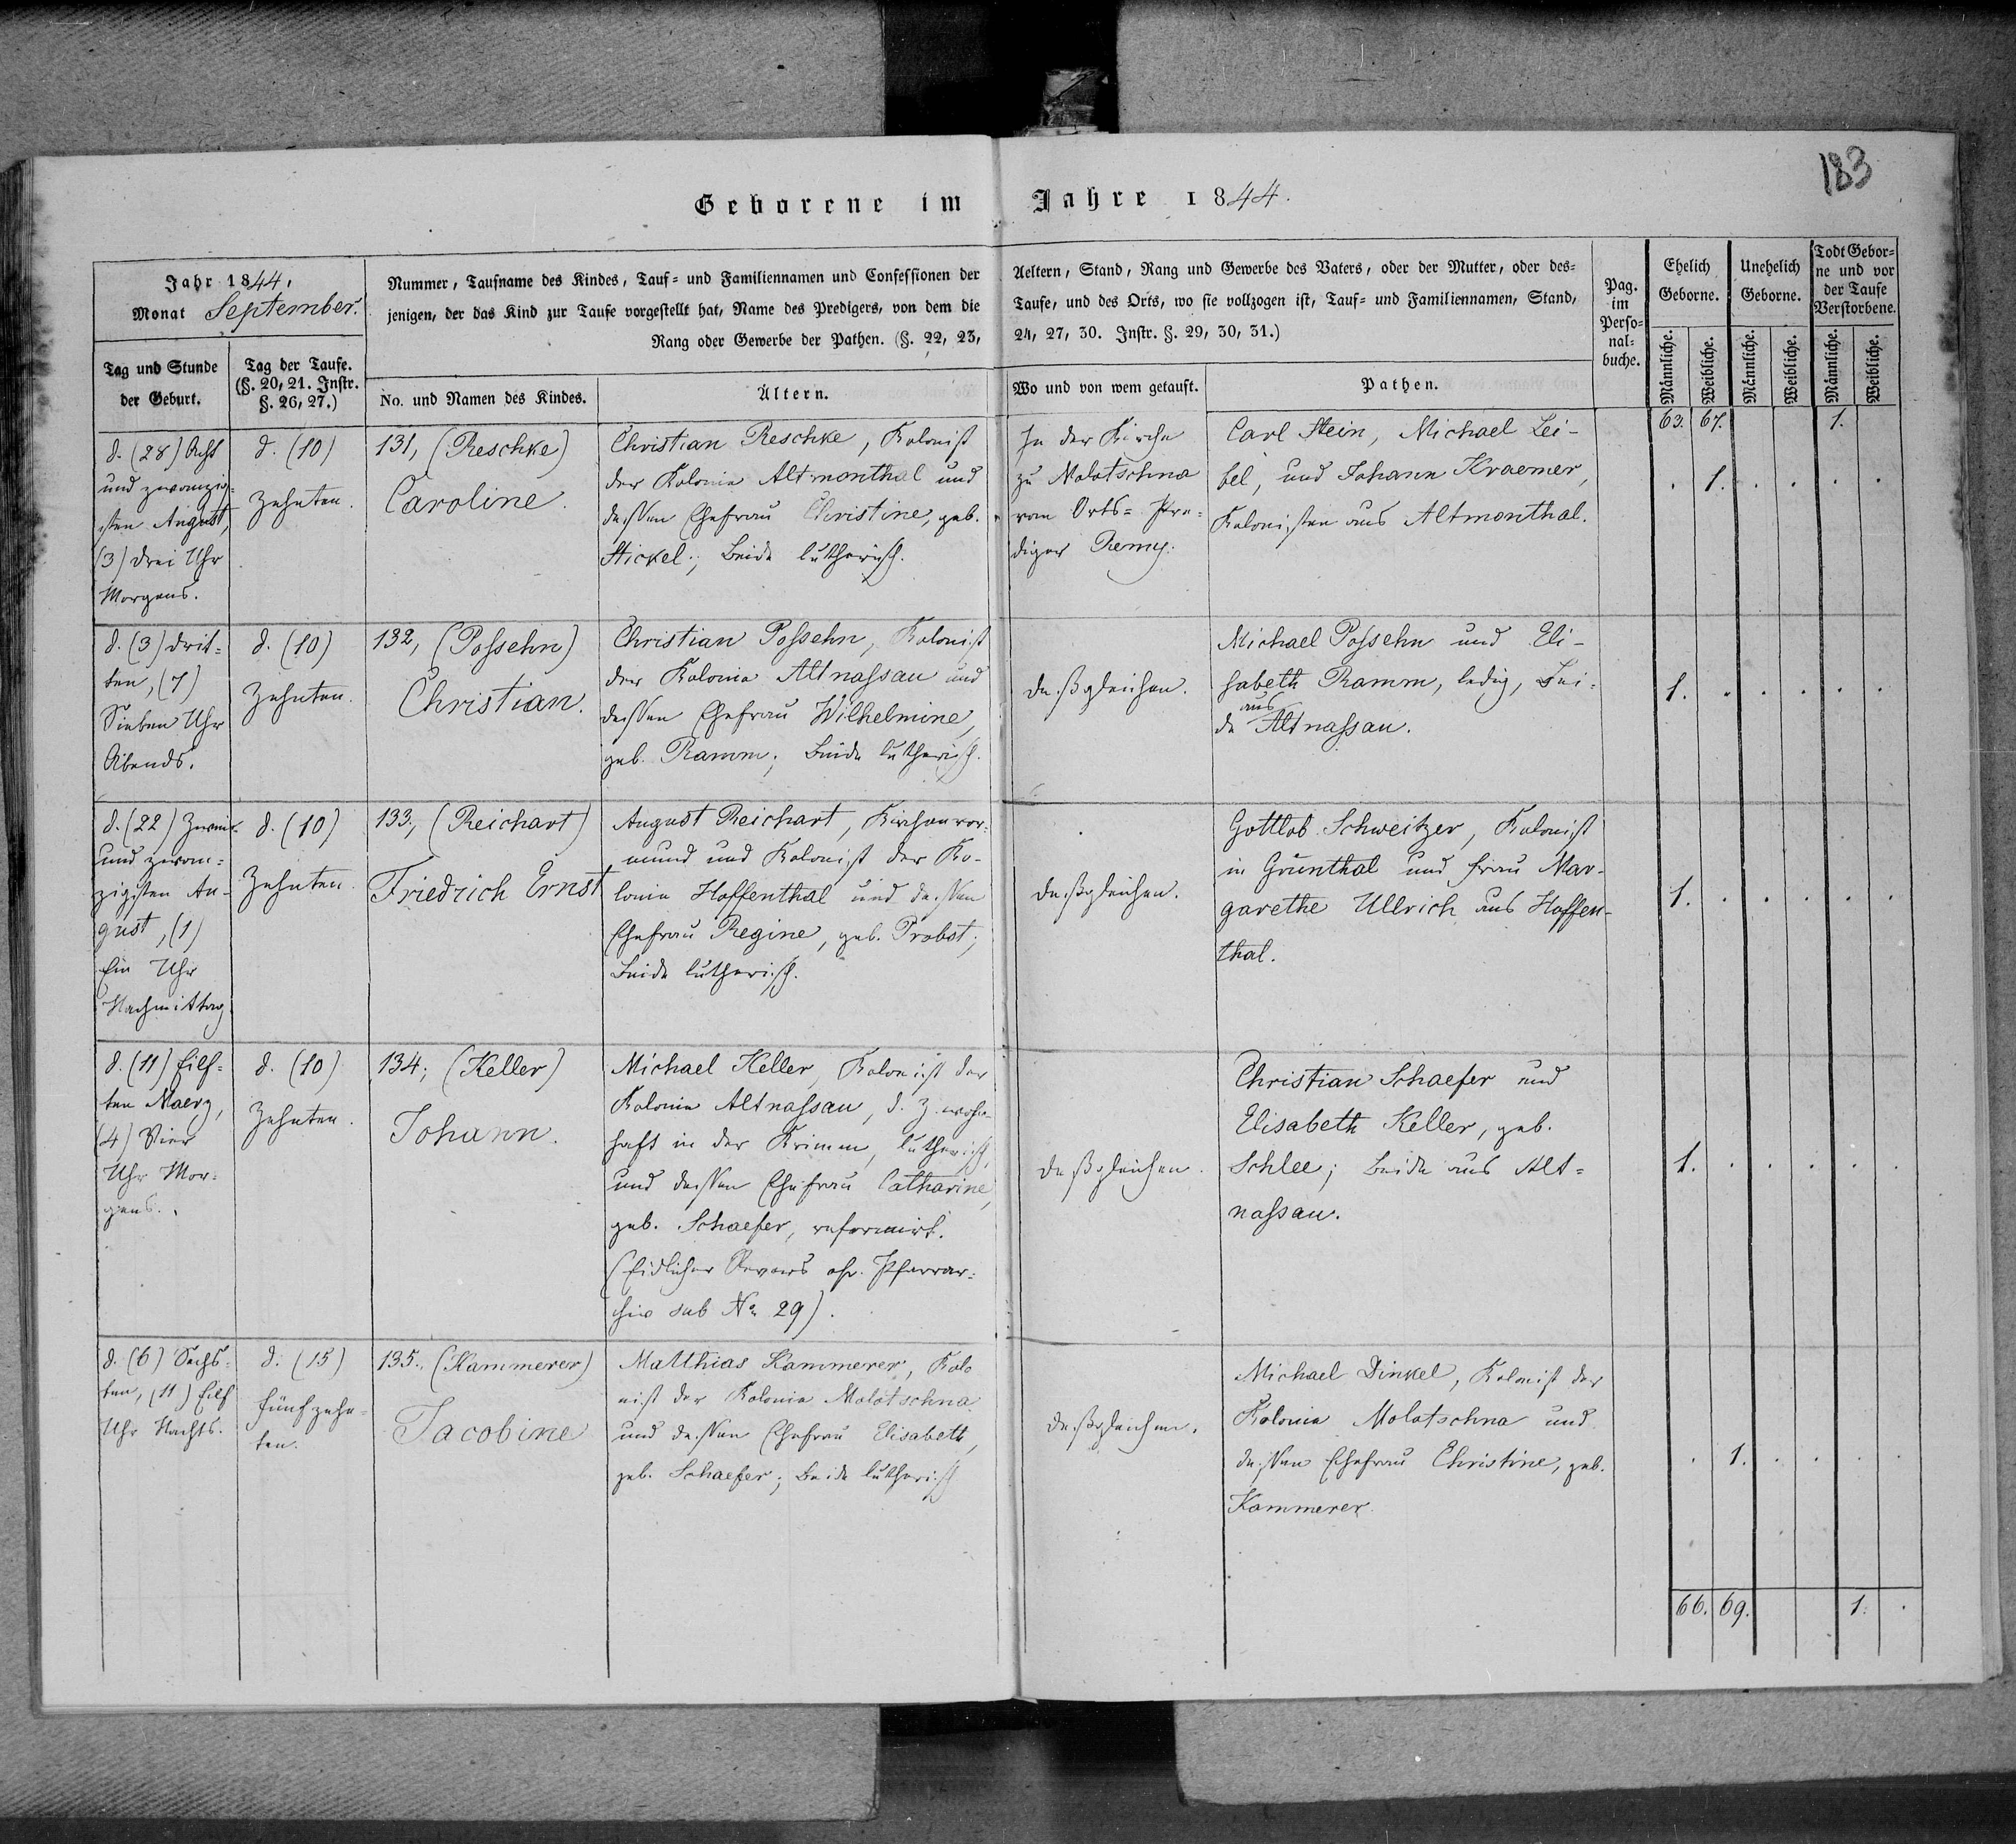 183
Geborene im Jahre 1844.
Jahr 1844,
Monat September.
Nummer, Taufname des Kindes, Tauf- und Familiennamen und Confessionen der Aeltern, Stand, Rang und Gewerbe des Vaters, oder der Mutter, oder des-
jenigen, der das Kind zur Taufe vorgestellt hat, Name des Predigers, von dem die Taufe, und des Orts, wo sie vollzogen ist, Tauf- und Familiennamen, Stand,
Rang oder Gewerbe der Pathen. (§. 22, 23, 24, 27, 30. Instr. §. 29, 30, 31.)
Tag und Stunde
der Geburt.
Tag der Taufe.
(§. 20, 21. Instr.
§. 26, 27.)
No. und Namen des Kindes.
Ältern.
Wo und von wem getauft.
Pathen.
Pag.
im
Perso-
nal-
buche.
Ehelich
Geborne.
Unehelich
Geborne.
Todt Gebor-
ne und vor
der Taufe
Verstorbene.
Männliche.
Weibliche.
Männliche.
Weibliche.
Männliche.
Weibliche.
63. 67. 1.
d. (28) Acht
und zwanzig-
sten August,
(3) drei Uhr
Morgens.
d. (10)
Zehnten.
131, (Reschke)
Caroline.
Christian Reschke, Kolonist
der Kolonie Altmonthal und
dessen Ehefrau Christine, geb.
Stickel; Beide lutherisch.
In der Kirche
zu Molotschna
vom Orts-Pre-
diger Remy.
Carl Stein, Michael Lei-
bel, und Johann Kraemer,
Kolonisten aus Altmonthal.
. 1. . . . .
d. (3) drit-
ten, (7)
Sieben Uhr
Abends.
d. (10)
Zehnten.
132, (Possehn)
Christian.
Christian Possehn, Kolonist
der Kolonie Altnassau und
dessen Ehefrau Wilhelmine,
geb. Ramm; Beide lutherisch.
deßgleichen.
Michael Possehn und Eli-
sabeth Ramm, ledig, Bei-
de aus Altnassau.
1. . . . . .
d. (22) Zwei
und zwan-
zigsten Au-
gust, (1)
Ein Uhr
Nachmittag
d. (10)
Zehnten.
133, (Reichart)
Friedrich Ernst
August Reichart, Kirchenvor-
mund und Kolonist der Ko-
lonie Hoffenthal und dessen
Ehefrau Regine, geb. Probst;
Beide lutherisch.
deßgleichen.
Gottlob Schweitzer, Kolonist
in Grünthal und Frau Mar-
garethe Ullrich aus Hoffen-
thal.
1. . . . . .
d. (11) Eilf-
ten Maerz,
(4) Vier
Uhr Mor-
gens.
d. (10)
Zehnten.
134; (Keller)
Johann.
Michael Keller, Kolonist der
Kolonie Altnassau, d. Z. wohn-
haft in der Krimm, lutherisch,
und dessen Ehefrau Catharine,
geb. Schaefer, reformirt.
(Eidlicher Revers Pfarrar-
chiv sub No 29).
deßgleichen.
Christian Schaefer und
Elisabeth Keller, geb.
Schlee; Beide aus Alt-
nassau.
1. . . . . .
d. (6) Sechs-
ten, (11) Eilf
Uhr Nachts.
d. (15)
fünfzehn-
ten.
135. (Kammerer)
Jacobine
Matthias Kammerer, Kolo
nist der Kolonie Molotschna
und dessen Ehefrau Elisabeth,
geb. Schaefer; Beide lutherisch
deßgleichen.
Michael Dinkel, Kolonist der
Kolonie Molotschna und
dessen Ehefrau Christine, geb.
Kammerer.
. 1. . . . .
66. 69. 1. .